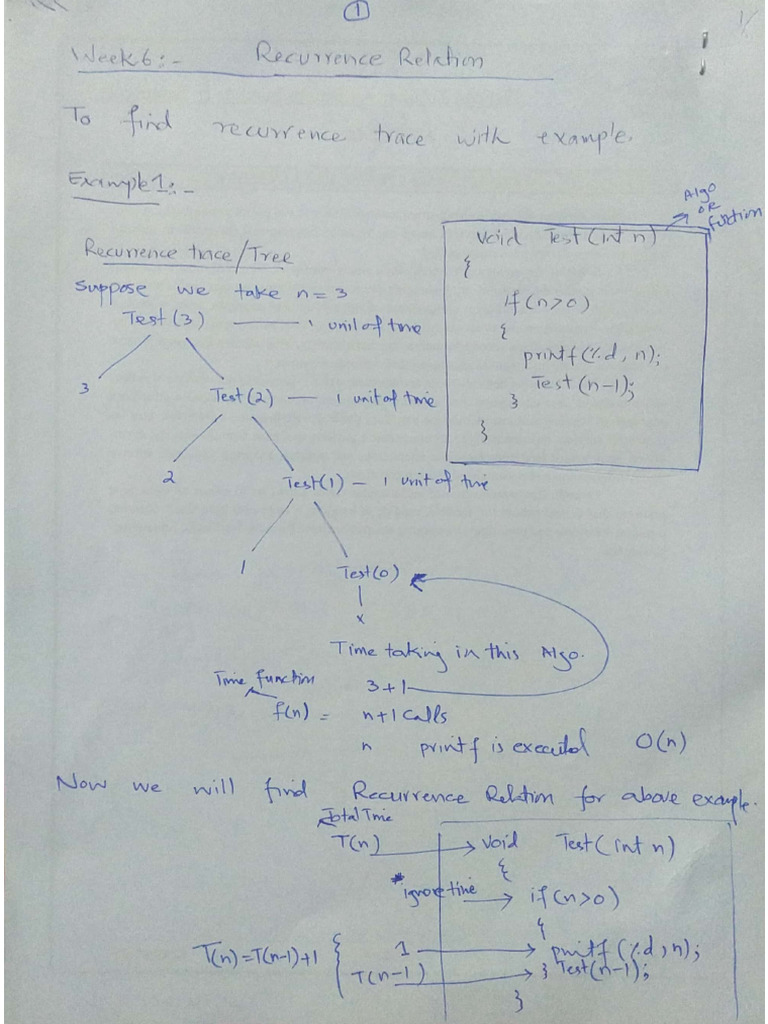 1
1/
Week6:- Recurrence Relation
To find recurrence trace with example.
Example1:-
Algo
OR
function
Recurrence trace/Tree
Suppose we take n=3
Test(3) — 1 unit of time
3
Test(2) — 1 unit of time
2
Test(1) — 1 unit of time
1
Test(0)
x
void Test(int n)
{
if(n>0)
{
printf(%d, n);
Test(n-1);
}
}
Time taking in this Algo.
Time function
3+1
f(n) = n+1 calls
n printf is executed O(n)
Now we will find Recurrence Relation for above example.
Total Time
T(n) → void Test(int n)
{
*ignore time → if(n>0)
{
T(n)=T(n-1)+1 { 1 → printf(%d, n);
T(n-1) → } Test(n-1);
}